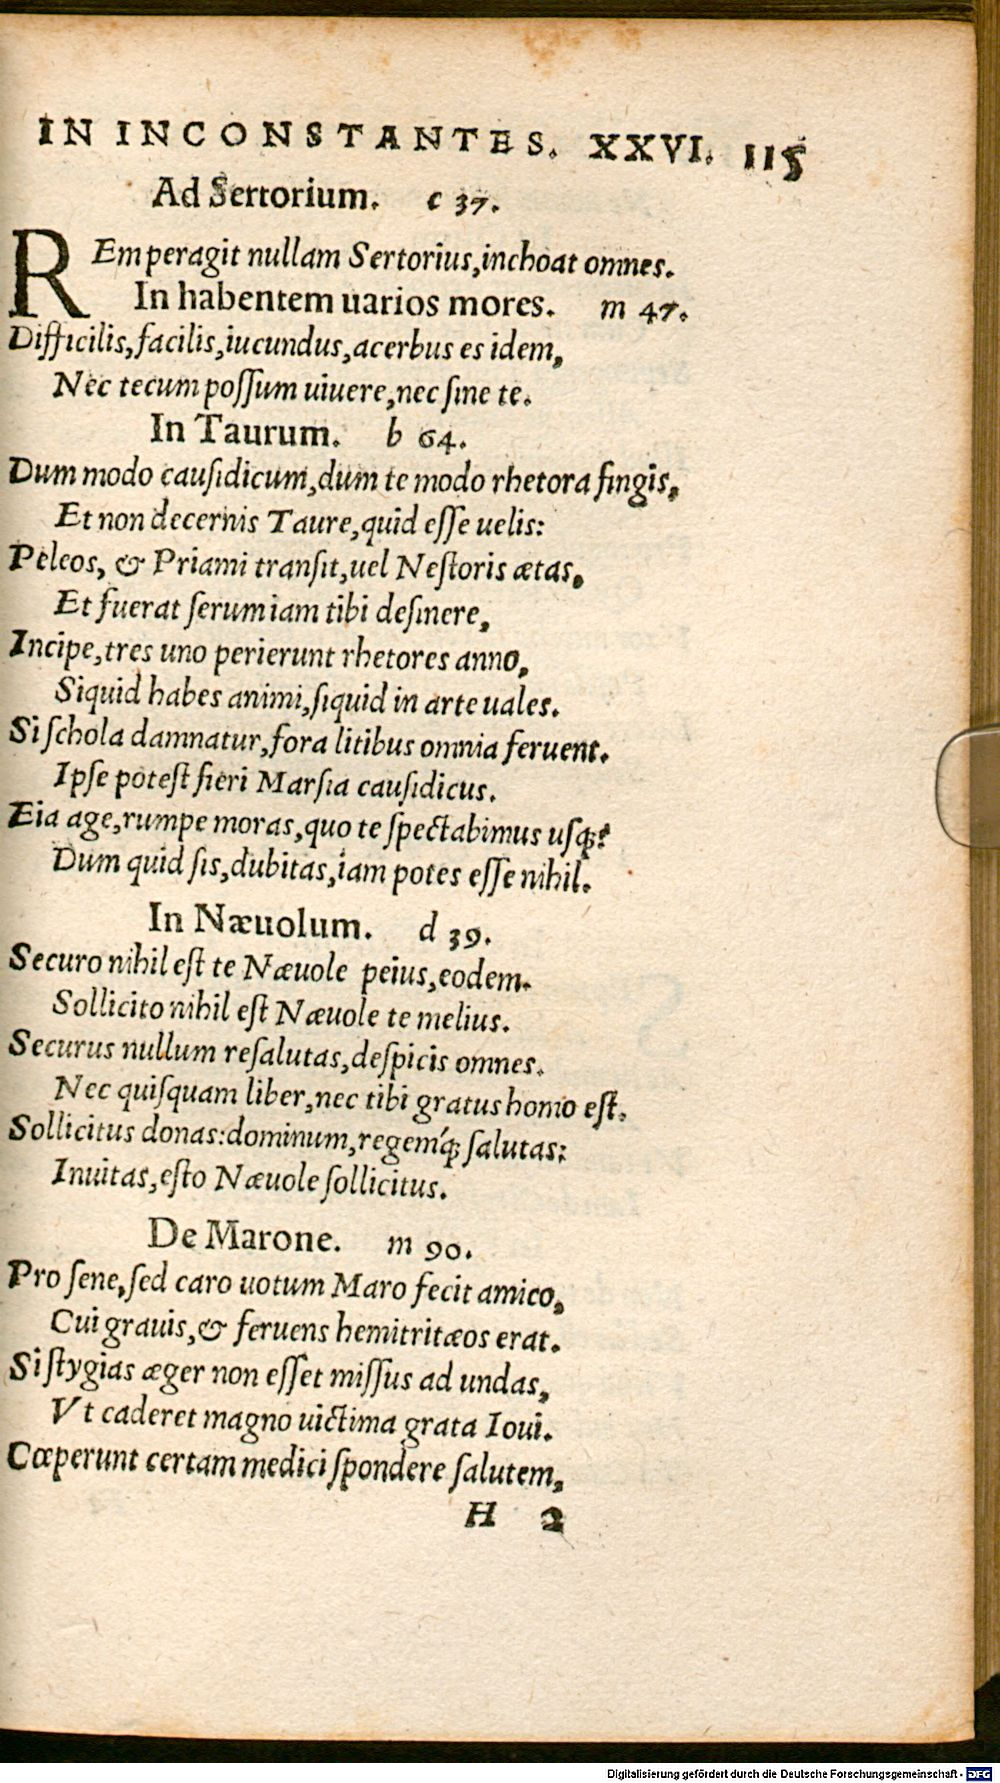 IN INCONSTANTES. XXVI. 115
Ad Sertorium. c 37.
REm peragit nullam Sertorius,inchoat omnes.
In habentem uarios mores. m 47.
Difficilis,facilis,iucundus,acerbus es idem,
Nec tecum poſſum uiuere,nec ſine te.
In Taurum. b 64.
Dum modo cauſidicum,dum te modo rhetora fingis,
Et non decernis Taure,quid eſſe uelis:
Peleos, & Priami tranſit,uel Neſtoris ætas,
Et fuerat ſerum iam tibi deſinere,
Incipe,tres uno perierunt rhetores anno,
Siquid habes animi,ſiquid in arte uales.
Si ſchola damnatur,fora litibus omnia feruent.
Ipſe poteſt fieri Marſia cauſidicus.
Eia age,rumpe moras,quo te ſpectabimus uſq;?
Dum quid ſis,dubitas,iam potes eſſe nihil.
In Næuolum. d 39.
Securo nihil eſt te Næuole peius,eodem.
Sollicito nihil eſt Næuole te melius.
Securus nullum reſalutas,deſpicis omnes.
Nec quiſquam liber,nec tibi gratus homo eſt.
Sollicitus donas:dominum,regemq́; ſalutas:
Inuitas,eſto Næuole ſollicitus.
De Marone. m 90.
Pro ſene,ſed caro uotum Maro fecit amico,
Cui grauis,& feruens hemitritæos erat.
Si ſtygias æger non eſſet miſſus ad undas,
Vt caderet magno uictima grata Ioui.
Cœperunt certam medici ſpondere ſalutem,
H 2
Digitalisierung gefördert durch die Deutsche Forschungsgemeinschaft - DFG